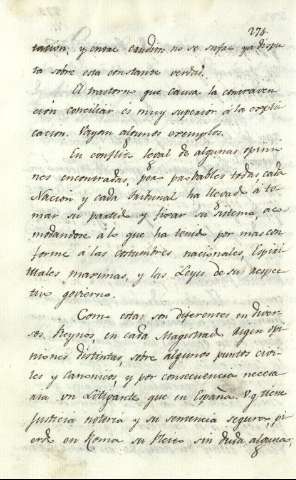 274.
tacion, y entre eruditos no se sufre ya dispu
ta sobre esta constante verdad.
El trastorno que causa la contraven
cion conciliar es muy superior á la expli
cacion. Vayan algunos exemplos.
En conflicto legal de algunas opinio
nes encontradas, pero probables todas, cada
Nacion y cada tribunal ha llevado á to
mar su partido y fixar su sistema, aco
modandose á lo que ha tenido por mas con
forme á las costumbres nacionales, Espiri
tuales maximas, y las Leyes de su respec
tivo govierno.
Como estas son diferentes en diver
sos Reynos, en cada Magistrado rigen opi
niones distintas, sobre algunos puntos civi
les y canonicos, y por consecuencia necesa
ria un Litigante que en España
justicia notoria y su sentencia segura, pi
erde en Roma su Pleito sin duda alguna,